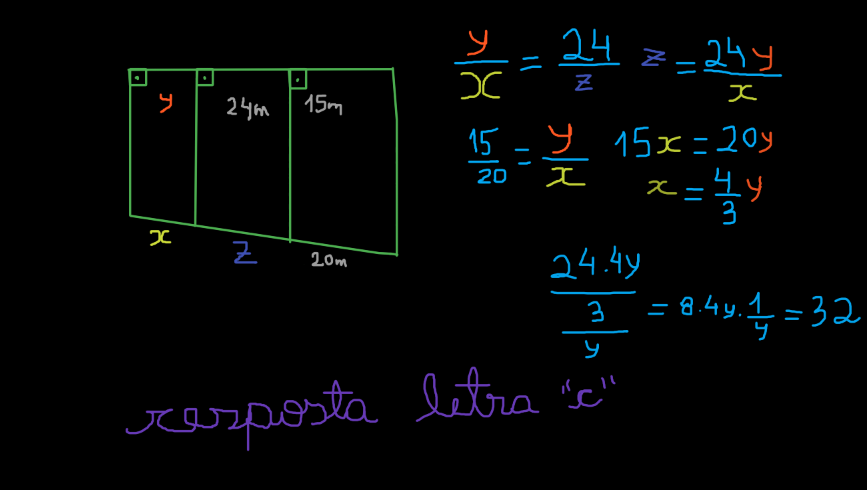 y 24m 15m
x z 20m
y/x = 24/z z = 24y/x
15/20 = y/x 15x = 20y
x = 4/3 y
24.4y/3/y = 8.4y.1/y = 32
resposta letra "c"